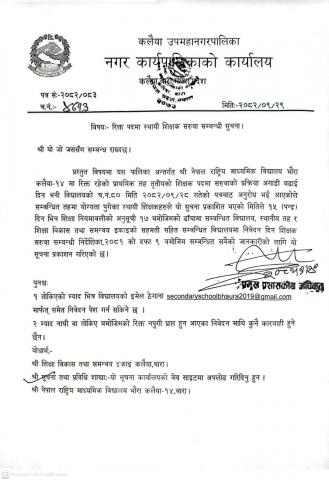 कलैया उपमहानगरपालिका
नगर कार्यपालिकाको कार्यालय
पत्र सं:-२०८२/०८३
च.नं:-
मितिः-२०८२/०९/२९
विषयः- रिक्त पदमा स्थायी शिक्षक सरुवा सम्बन्धी सूचना।
श्री यो जो जससँग सम्बन्ध राख्दछ।
प्रस्तुत विषयमा यस पालिका अन्तर्गत श्री नेपाल राष्ट्रिय माध्यमिक विद्यालय भौंरा
कलैया-१४ मा रिक्त रहेको प्राथमिक तह तृतीयको शिक्षक पदमा सरुवाको प्रक्रिया अगाडी बढाई
दिन भनी विद्यालयको च.नं.८० मिति २०८२/०९/२८ गतेको पत्रबाट अनुरोध भई आएकोले
सम्बन्धित तहमा योग्यता पुगेका स्थायी शिक्षकहरुले यो सूचना प्रकाशित भएको मितिले १५ (पन्ध्र)
दिन भित्र शिक्षा नियमावलीको अनुसूची १७ बमोजिमको ढाँचामा सम्बन्धित विद्यालय, स्थानीय तह र
शिक्षा विकास तथा समन्वय इकाइको सहमती सहित सम्बन्धित विद्यालयमा निवेदन दिन शिक्षक
सरुवा सम्बन्धी निर्देशिका,२०८१ को दफा ९ बमोजिम सम्बन्धित सबैको जानकारीको लागि यो
सूचना प्रकाशन गरिएको छ।
प्रमुख प्रशासकीय अधिकृत
पुनश्चः
१ तोकिएको म्याद भित्र विद्यालयको इमेल ठेगाना secondaryschoolbhaura2019@gmail.com
मार्फत् समेत निवेदन पेश गर्न सकिने छ ।
२ म्याद नाघी वा तोकिए बमोजिमको रित नपुगी प्राप्त हुन आएका निवेदन माथि कुनै कारवाही हुने
छैन।
बोधार्थः-
श्री शिक्षा विकास तथा समन्वय इकाइ कलैया,बारा।
श्री सूचना तथा प्रविधि शाखाः- यो सूचना कार्यालयको वेब साइटमा अपलोड गरिदिनु हुन ।
श्री नेपाल राष्ट्रिय माध्यमिक विद्यालय भौंरा कलैया-१४,बारा।